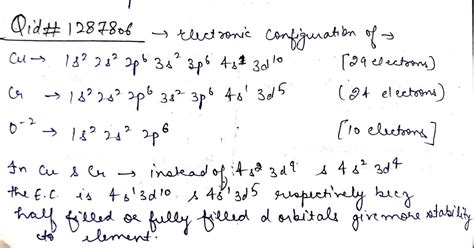 Qid# 1287806 → Electronic configuration of →
Cu → 1s² 2s² 2p⁶ 3s² 3p⁶ 4s¹ 3d¹⁰ [29 electrons]
Cr → 1s² 2s² 2p⁶ 3s² 3p⁶ 4s¹ 3d⁵ (24 electrons)
O⁻² → 1s² 2s² 2p⁶ [10 electrons]
In Cu & Cr → instead of 4s² 3d⁹ & 4s² 3d⁴
the E.C. is 4s¹ 3d¹⁰ & 4s¹ 3d⁵ respectively bec₃
half filled or fully filled d orbitals give more stability
to element.